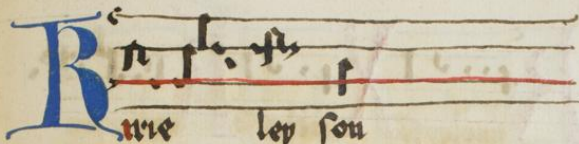 Kirie ley son